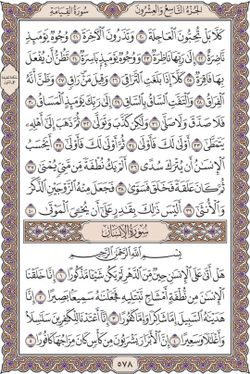 الجزء التاسع والعشرون سورة القيامة
كَلَّا بَلْ تُحِبُّونَ ٱلْعَاجِلَةَ ٢٠ وَتَذَرُونَ ٱلْآخِرَةَ ٢١ وُجُوهٌ يَوْمَئِذٍ
نَّاضِرَةٌ ٢٢ إِلَىٰ رَبِّهَا نَاظِرَةٌ ٢٣ وَوُجُوهٌ يَوْمَئِذٍۭ بَاسِرَةٌ ٢٤ تَظُنُّ أَن يُفْعَلَ
بِهَا فَاقِرَةٌ ٢٥ كَلَّآ إِذَا بَلَغَتِ ٱلتَّرَاقِىَ ٢٦ وَقِيلَ مَنْ رَاقٍ ٢٧ وَظَنَّ أَنَّهُ
ٱلْفِرَاقُ ٢٨ وَٱلْتَفَّتِ ٱلسَّاقُ بِٱلسَّاقِ ٢٩ إِلَىٰ رَبِّكَ يَوْمَئِذٍ ٱلْمَسَاقُ
٣٠ فَلَا صَدَّقَ وَلَا صَلَّىٰ ٣١ وَلَٰكِن كَذَّبَ وَتَوَلَّىٰ ٣٢ ثُمَّ ذَهَبَ إِلَىٰٓ أَهْلِهِۦ
يَتَمَطَّىٰٓ ٣٣ أَوْلَىٰ لَكَ فَأَوْلَىٰ ٣٤ ثُمَّ أَوْلَىٰ لَكَ فَأَوْلَىٰٓ ٣٥ أَيَحْسَبُ
ٱلْإِنسَٰنُ أَن يُتْرَكَ سُدًى ٣٦ أَلَمْ يَكُ نُطْفَةً مِّن مَّنِىٍّ يُمْنَىٰ ٣٧
ثُمَّ كَانَ عَلَقَةً فَخَلَقَ فَسَوَّىٰ ٣٨ فَجَعَلَ مِنْهُ ٱلزَّوْجَيْنِ ٱلذَّكَرَ
وَٱلْأُنثَىٰٓ ٣٩ أَلَيْسَ ذَٰلِكَ بِقَٰدِرٍ عَلَىٰٓ أَن يُحْۦِىَ ٱلْمَوْتَىٰ ٤٠
سورة الإنسان
بِسْمِ ٱللَّهِ ٱلرَّحْمَٰنِ ٱلرَّحِيمِ
هَلْ أَتَىٰ عَلَى ٱلْإِنسَٰنِ حِينٌ مِّنَ ٱلدَّهْرِ لَمْ يَكُن شَيْـًٔا مَّذْكُورًا ١ إِنَّا خَلَقْنَا
ٱلْإِنسَٰنَ مِن نُّطْفَةٍ أَمْشَاجٍ نَّبْتَلِيهِ فَجَعَلْنَٰهُ سَمِيعًۢا بَصِيرًا ٢ إِنَّا
هَدَيْنَٰهُ ٱلسَّبِيلَ إِمَّا شَاكِرًا وَإِمَّا كَفُورًا ٣ إِنَّآ أَعْتَدْنَا لِلْكَٰفِرِينَ سَلَٰسِلَا۟
وَأَغْلَٰلًا وَسَعِيرًا ٤ إِنَّ ٱلْأَبْرَارَ يَشْرَبُونَ مِن كَأْسٍ كَانَ مِزَاجُهَا كَافُورًا ٥
٥٧٨